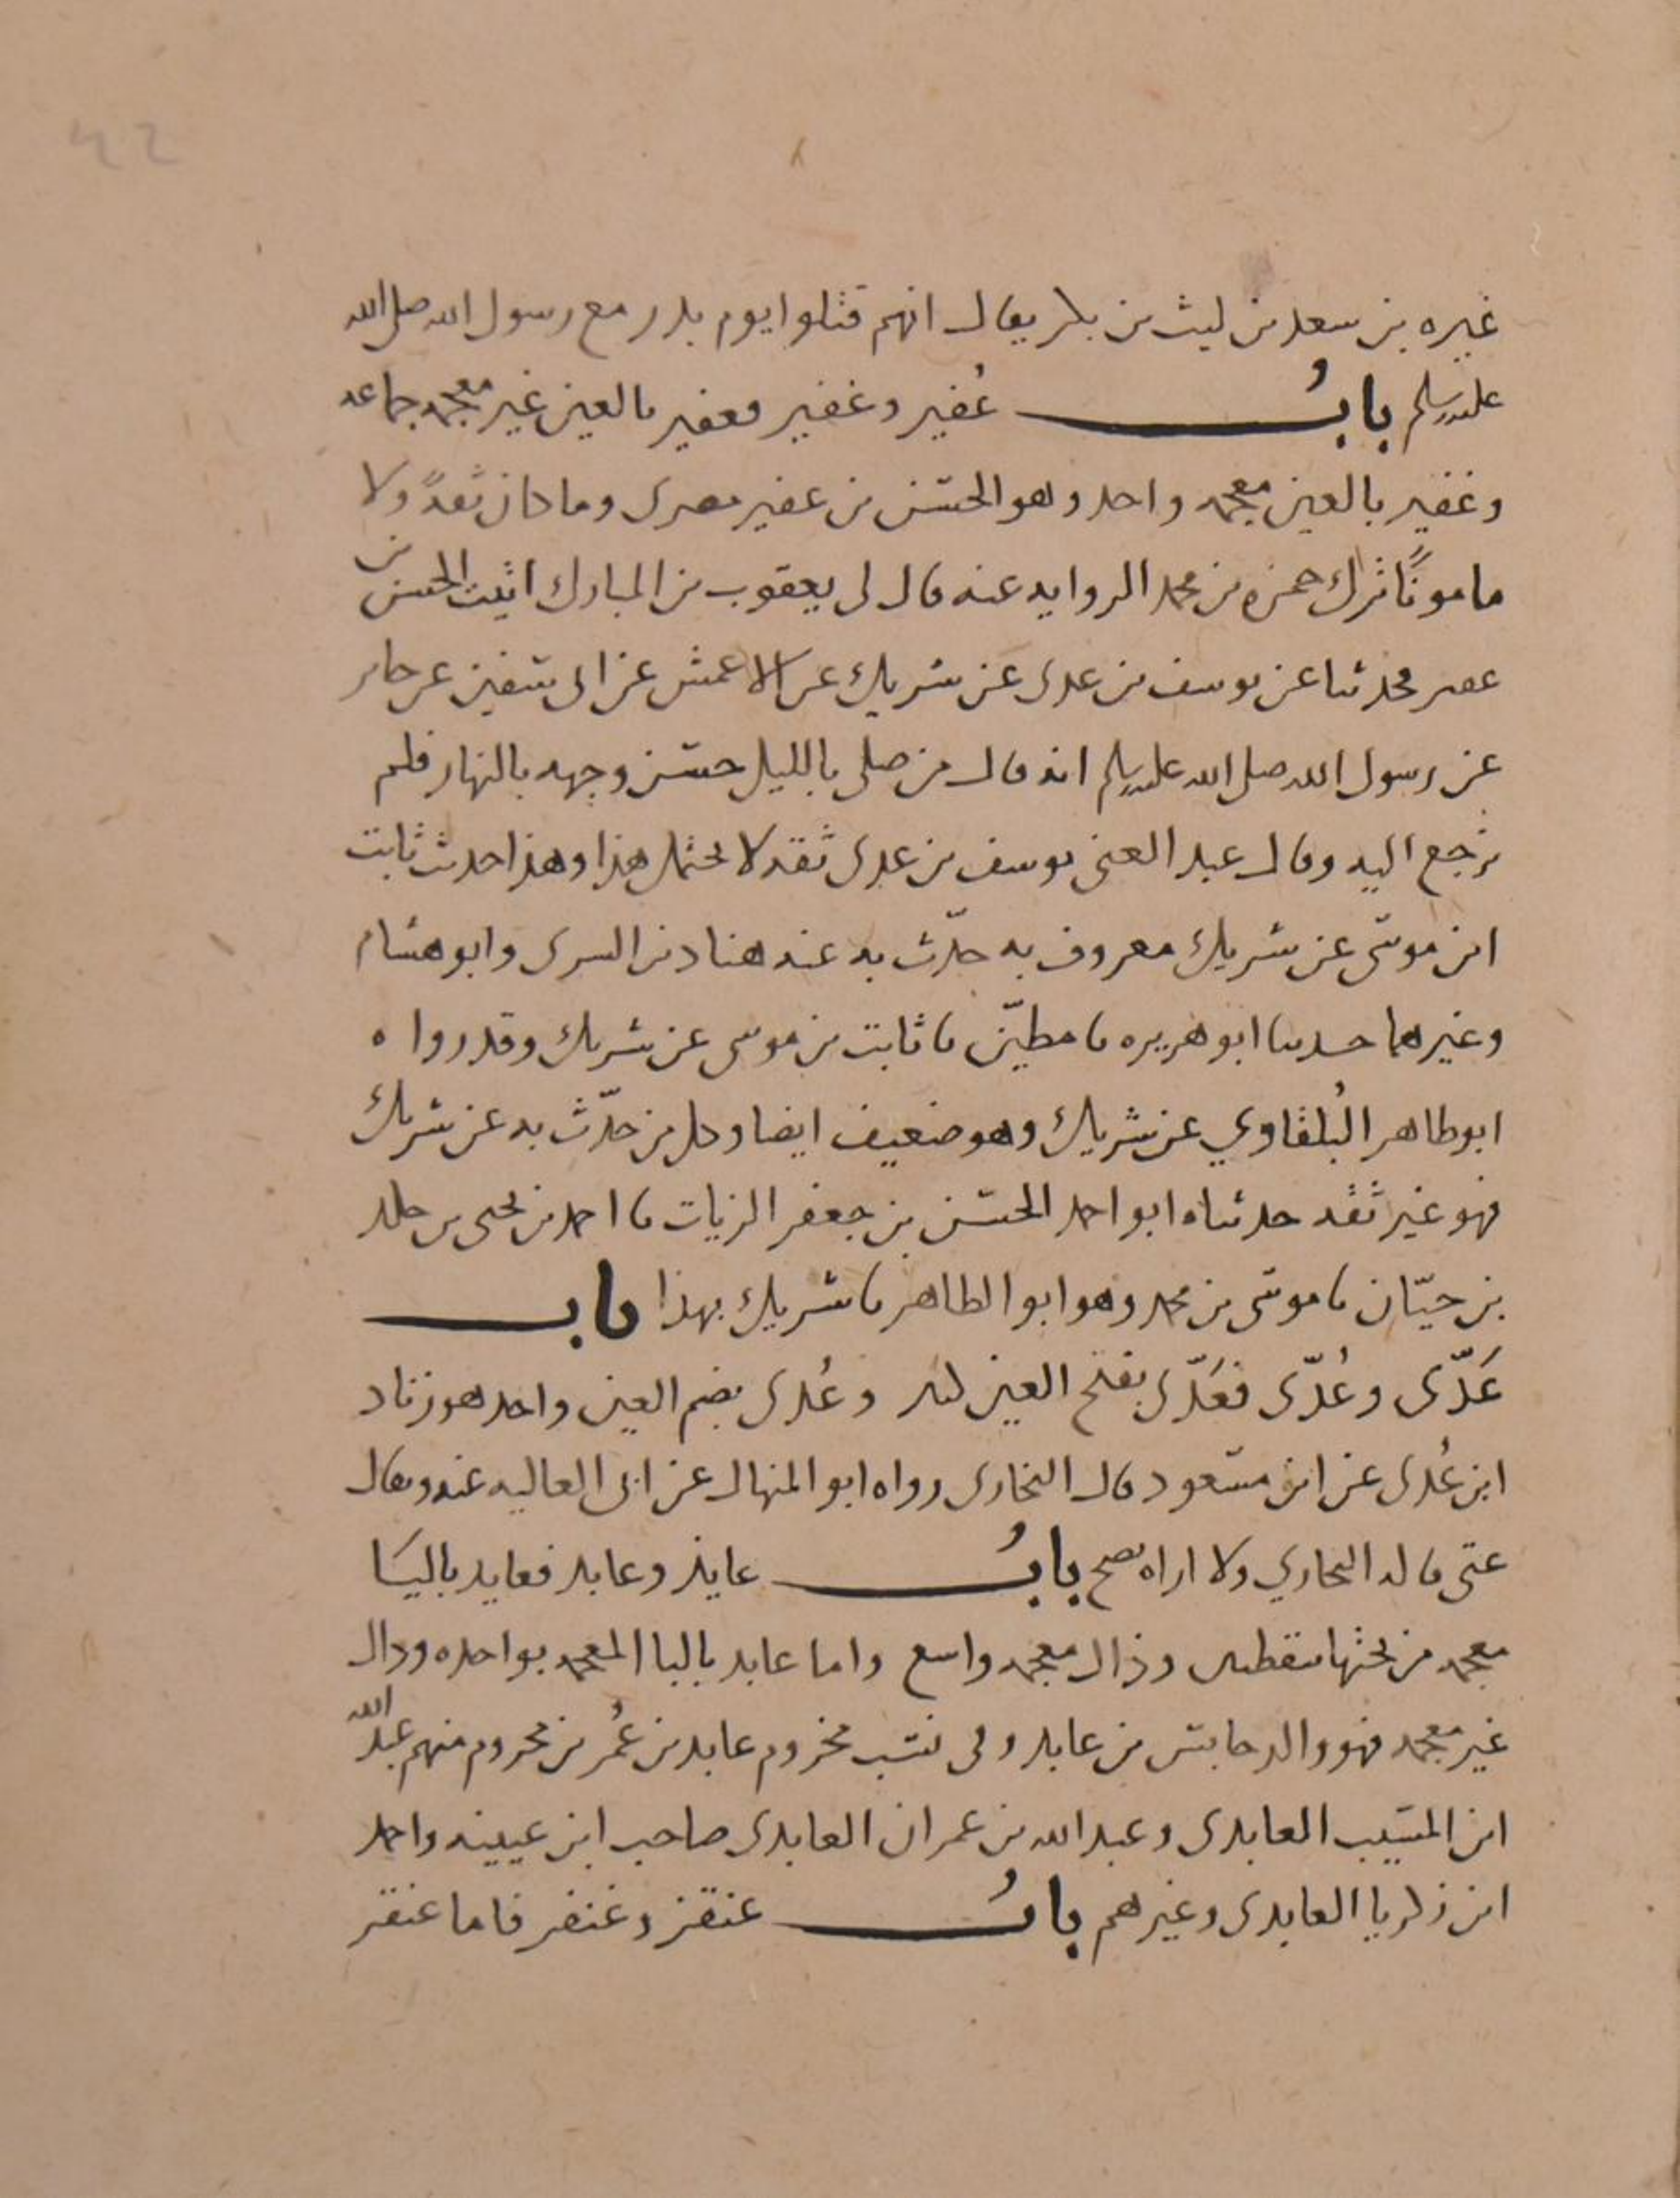 42
غيره بن سعد بن ليث بن بكر يقال انهم قتلوا يوم بدر مع رسول الله صلى الله
عليه وسلم باب عُفير وغفير فعفير بالعين غير معجمه جماعه
وغفير بالغين معجمه واحد وهو الحسن بن غفير مصري وما كان ثقةً ولا
مامونًا ترك حمزه بن محمد الروايه عنه قال لى يعقوب بن المبارك اتيت الحسن بن
غفير فحدثنا عن يوسف بن عدى عن شريك عن الاعمش عن ابى سفين عن جابر
عن رسول الله صلى الله عليه وسلم انه قال من صلى بالليل حسن وجهه بالنهار فلم
نرجع اليه وقال عبد الغنى يوسف بن عدى ثقه لا يحتمل هذا وهذا حديث ثابت
ابن موسى عن شريك معروف به حدّث به عنه هناد بن السرى وابو هشام
وغيرهما حدثنا ابو هريره نا مطيّن نا ثابت بن موسى عن شريك وقد رواه
ابو طاهر البُلقاوي عن شريك وهو ضعيف ايضا وكل من حدّث به عن شريك
فهو غير ثقه حدثناه ابو احمد الحسن بن جعفر الزيات نا احمد بن يحيى بن خالد
بن حيّان نا موسى بن محمد وهو ابو الطاهر نا شريك بهذا باب
عَدّى وعُدّى فعَدّى بفتح العين كثير وعُدى بضم العين واحد هو زناد
ابن عُدى عن ابن مسعود قال البخارى رواه ابو المنهال عن ابى العاليه عنه ويقال
عتى قاله البخاري ولا اراه يصح باب عايذ وعابد فعايذ باليَا
معجمه من تحتها بنقطتين وذال معجمه واسع واما عابد بالبا المعجمه بواحده ودال
غير معجمه فهو والد حابس بن عابد وفى نسب مخزوم عابد بن عُمر بن مخزوم منهم عبد الله
ابن المسَيب العابدى وعبد الله بن عمران العابدى صاحب ابن عيينه واحمد
ابن زكريا العابدى وغيرهم باب عنقز وغنفر فاما عنقز